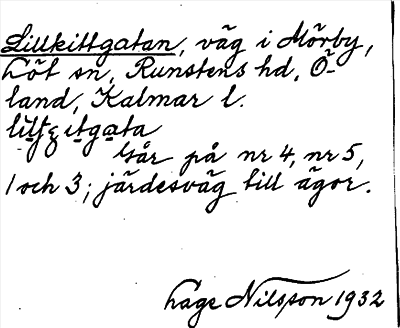 Lillkittgatan, väg i Mörby,
Löt sn, Runstens hd, Ö-
land, Kalmar l.
går på nr 4, nr 5,
1 och 3; järdesväg till ägor.
Hage Nilsson 1932